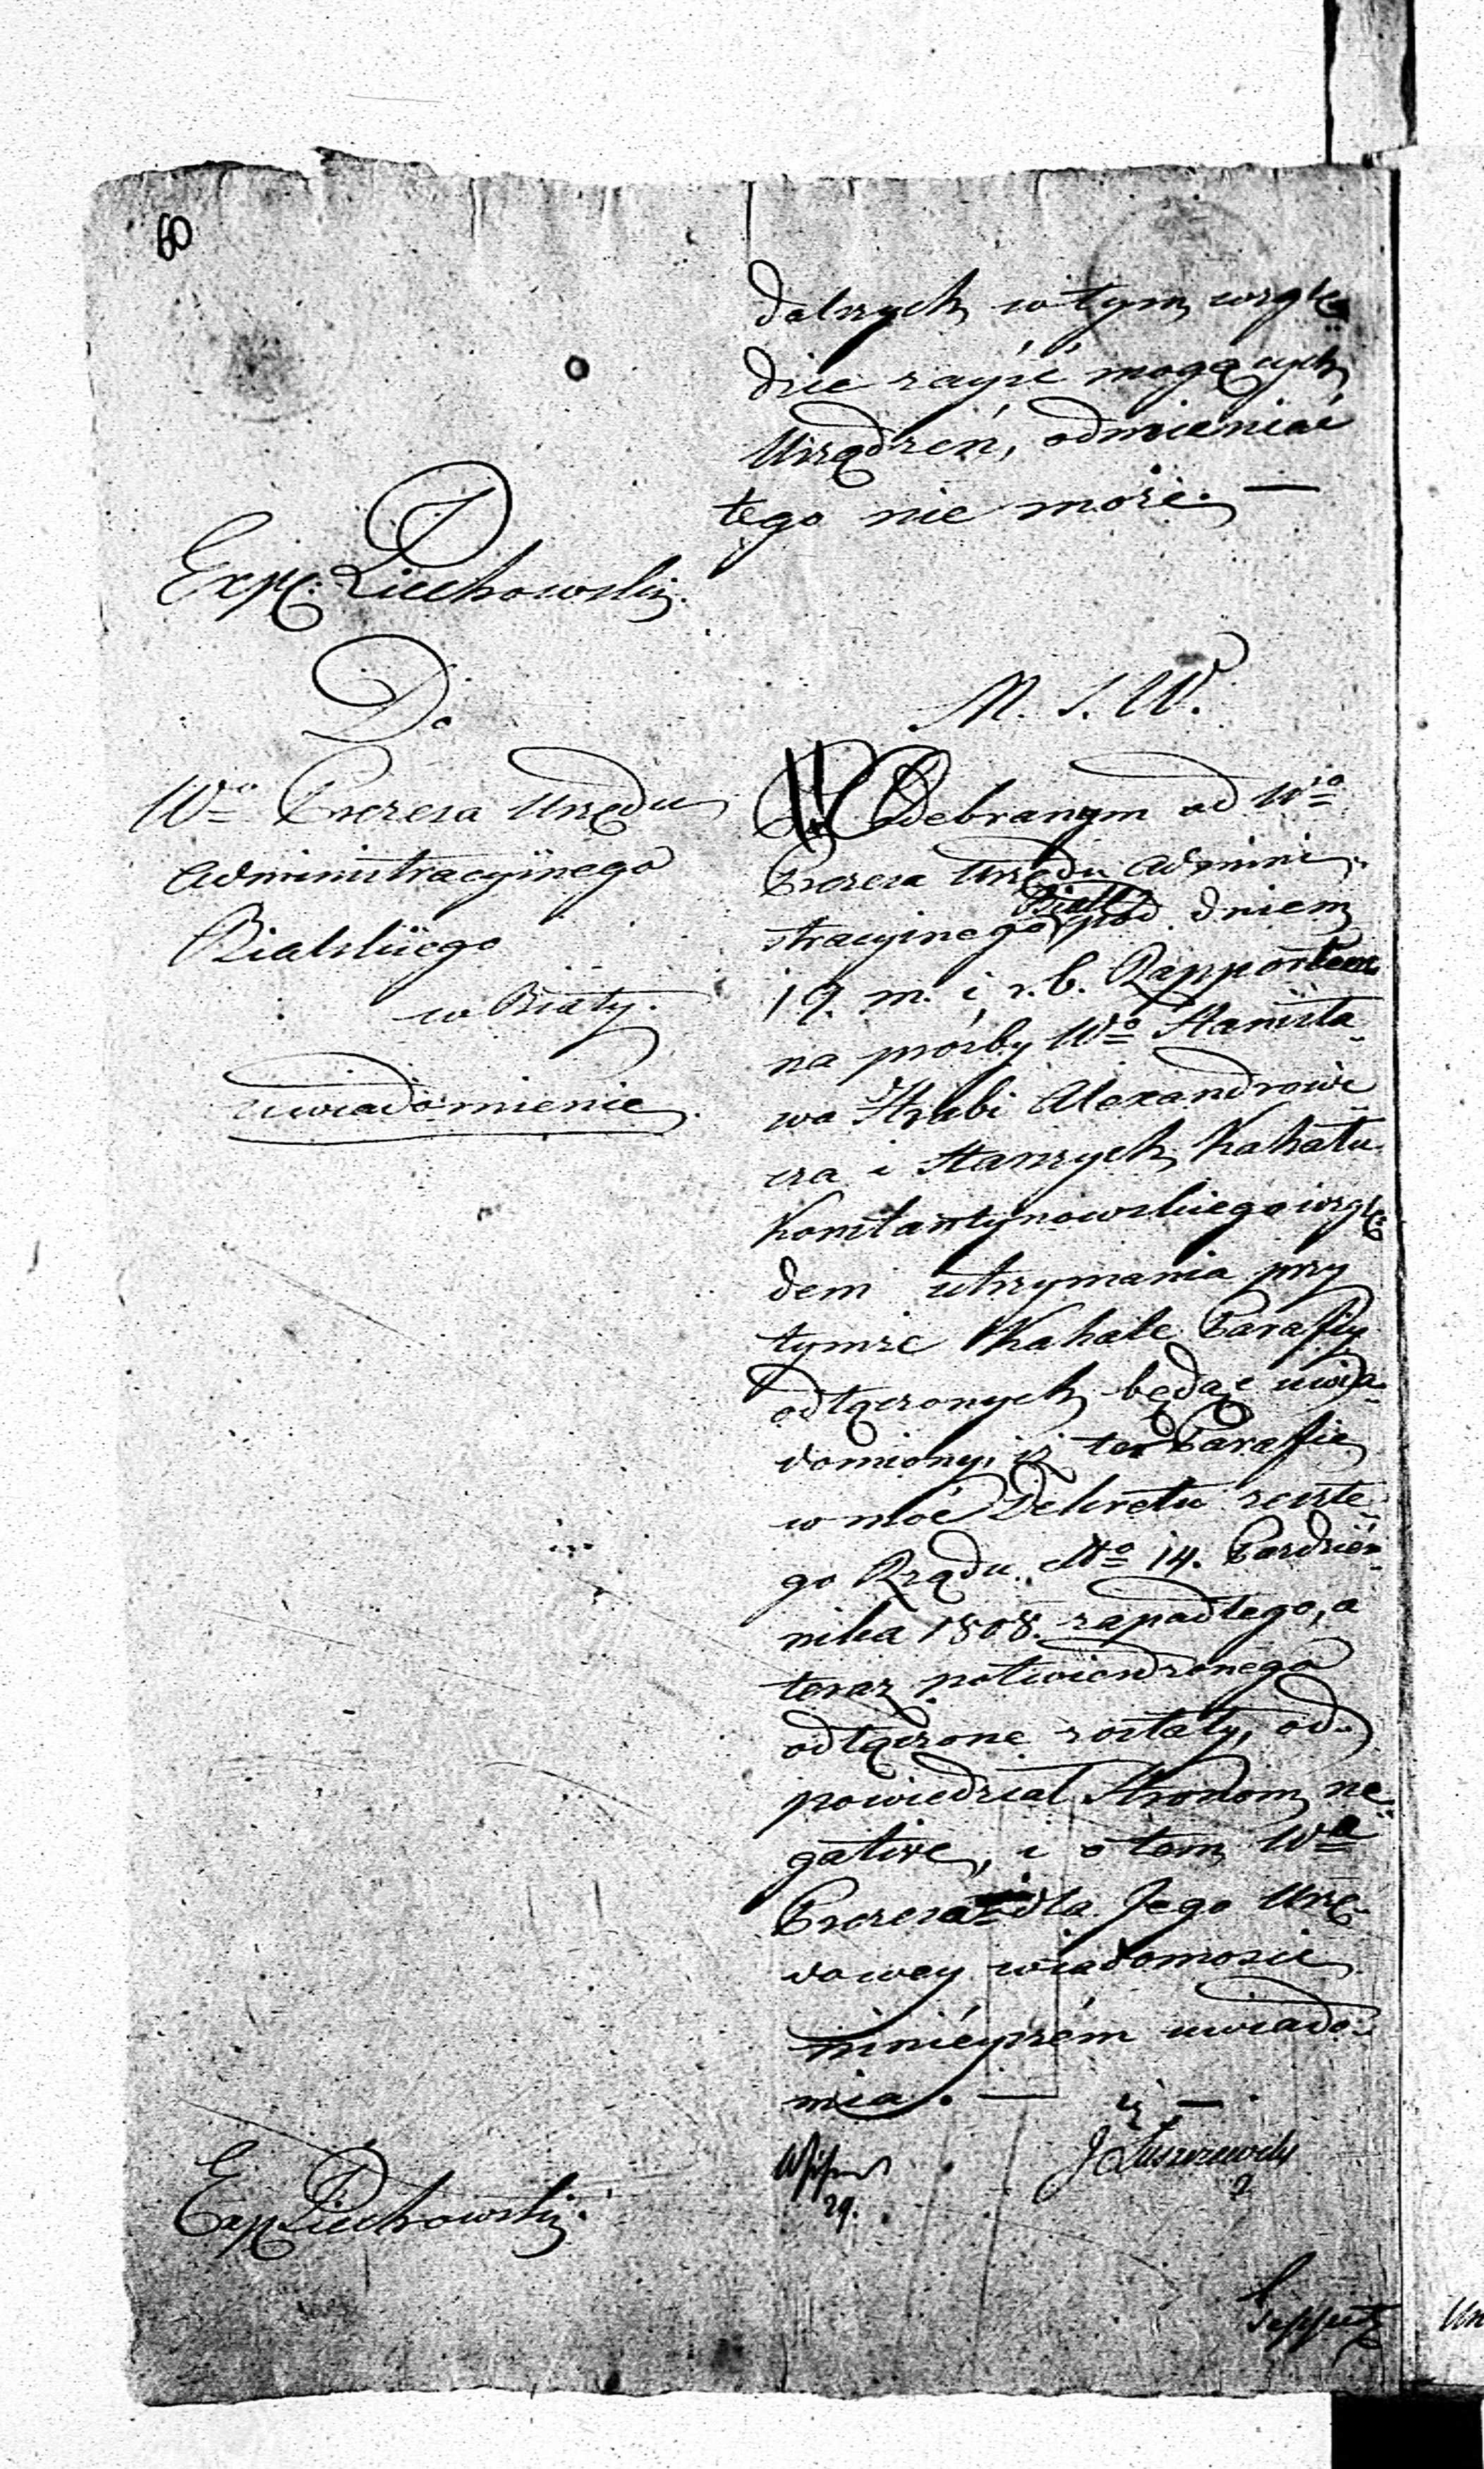 60
dalszych w tym wzglę=
dzie zayść mogących
Urządzeń, odmieniać
tego nie może. —
Exp: Piechowski.
Do
Wo Prezesa Urzędu
Administracyinego
Bialskiego
w Biały.
uwiadomienie.
M. S. W.
Odebranym od Wgo
Prezesa Urzędu Admini-
stracyinego Bialł pod dniem
19. m. i r. b. Rapportem
na prośby Wo Stanisła-
wa Hrabi Alexandrowi-
cza i Starszych Kahału
Konstantynowskiego wzglę-
dem utrzymania przy
tymże Kahale Parafiy
odłączonych będąc uwia-
domiony, iż te Parafie
w moc Dekretu zeszłe-
go Rządu dto 14. Paździer-
nika 1808. zapadłego, a
teraz potwierdzonego
odłączone zostały, od-
powiedział Stronom ne-
gative, i o tem Wo
Prezesa dla Jego Urzę-
dowey wiadomości
ninieyszém uwiado-
mia. —
29.
J Łuszczewski
Exp Piechowski.